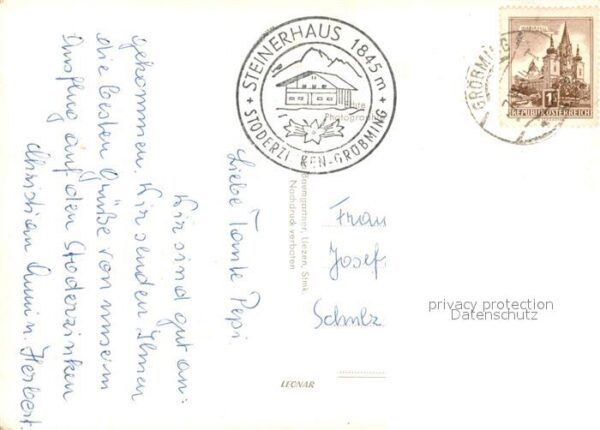 Liebe Tante Pepi.
Wir sind gut an-
gekommen. Wir senden Ihnen
die besten Grüße von unserm
Ausflug auf den Stoderzinken
Christian u. Herbert.
STEINERHAUS 1845 m
STODERZI KEN-GRÖBMING
Photograph
Baumgartner, Liezen, Stmk.
Nachdruck verboten
LEONAR
MARIAZELL
1 S
REPUBLIK ÖSTERREICH
GRÖBMING
Frau
Josef
Schulz
privacy protection
Datenschutz